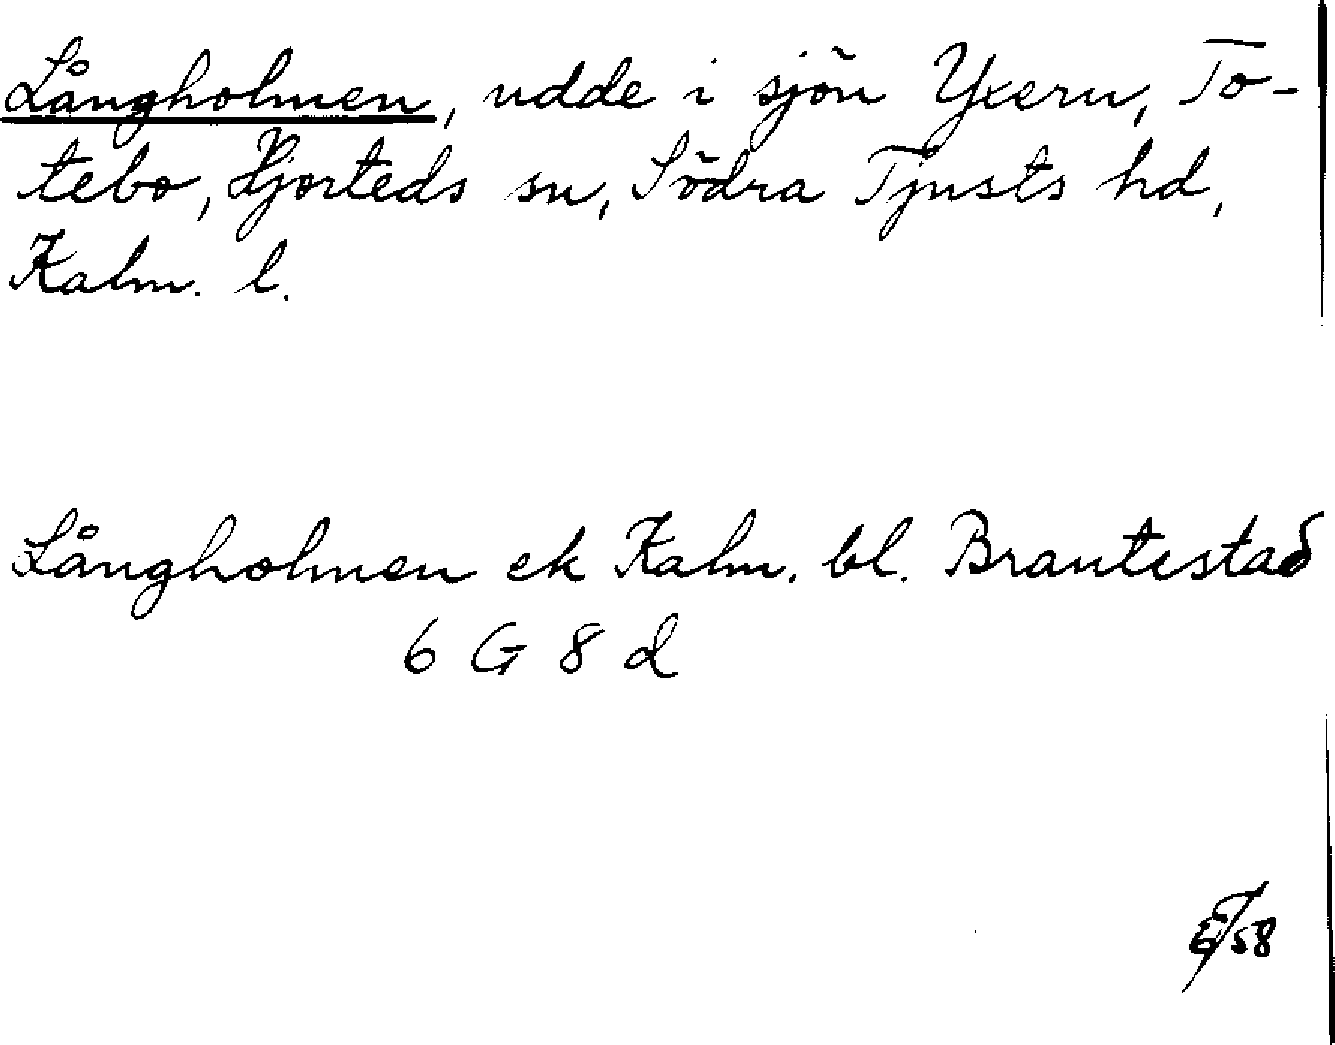 Långholmen, udde i sjön Yxern, To-
tebo, Hjorteds sn, Södra Tjusts hd,
Kalm. l.
Långholmen ek Kalm. bl. Brantestad
6 G 8 d
58